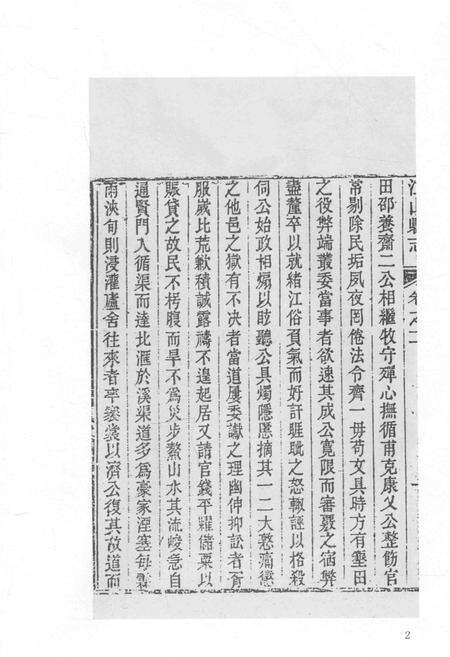 江山縣志 卷之二
田邵養齋二公相繼牧守殫心撫循甫克康乂公整飭官
常剔除民垢夙夜罔倦法令齊一毋苟文具時方有墾田
之役弊端叢委當事者欲速其成公寬限而審覈之宿弊
盡釐卒以就緒江俗負氣而好訐睚眦之怒輒誣以格殺
伺公始政相煽以眩聽公具燭隱匿摘其一二大憝痛懲
之他邑之獄有不决者當道屢委讞之理幽伸抑訟者胥
服歲比荒歉積誠露禱不遑起居又請官錢平糴儲粟以
賑貸之故民不枵腹而旱不爲災步鰲山水其流峻急自
通賢門入循渠而達北滙於溪渠道多爲豪家湮塞每霖
雨浹旬則浸灌廬舍往來者率褰裳以濟公復其故道而
2